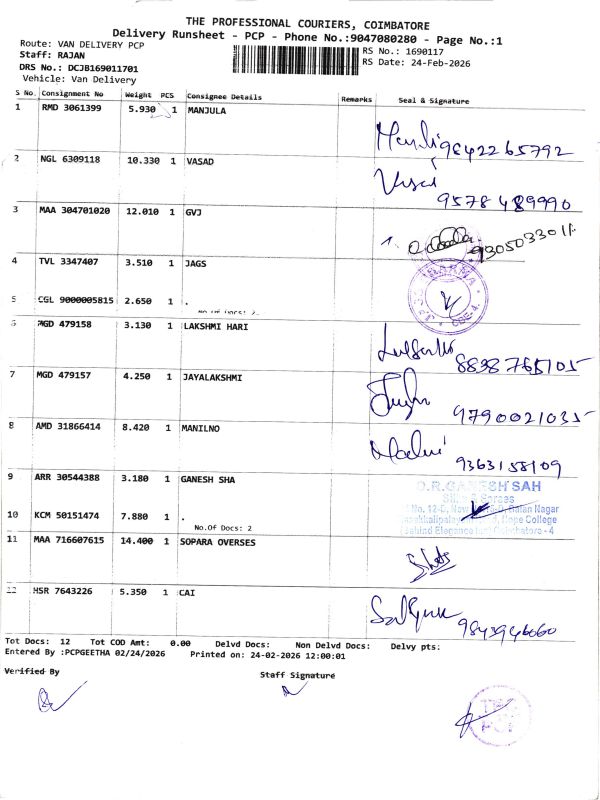 THE PROFESSIONAL COURIERS, COIMBATORE
Delivery Runsheet - PCP - Phone No.:9047080280 - Page No.:1
Route: VAN DELIVERY PCP
RS No.: 1690117
Staff: RAJAN
RS Date: 24-Feb-2026
DRS No.: DCJB169011701
Vehicle: Van Delivery
S No. Consignment No Weight PCS Consignee Details Remarks Seal & Signature
1 RMD 3061399 5.930 1 MANJULA
9842265792
2 NGL 6309118 10.330 1 VASAD
9578489990
3 MAA 304701020 12.010 1 GVJ
4 TVL 3347407 3.510 1 JAGS
5 CGL 9000005815 2.650 1 .
No.Of Docs: 2
6 MGD 479158 3.130 1 LAKSHMI HARI
7 MGD 479157 4.250 1 JAYALAKSHMI
9790021035
8 AMD 31866414 8.420 1 MANILNO
9363158109
9 ARR 30544388 3.180 1 GANESH SHA
O.R.GANESH SAH
10 KCM 50151474 7.880 1 .
No.Of Docs: 2
Hope College
11 MAA 716607615 14.400 1 SOPARA OVERSES
12 HSR 7643226 5.350 1 CAI
9843946060
Tot Docs: 12 Tot COD Amt: 0.00 Delvd Docs: Non Delvd Docs: Delvy pts:
Entered By :PCPGEETHA 02/24/2026 Printed on: 24-02-2026 12:00:01
Verified By
Staff Signature